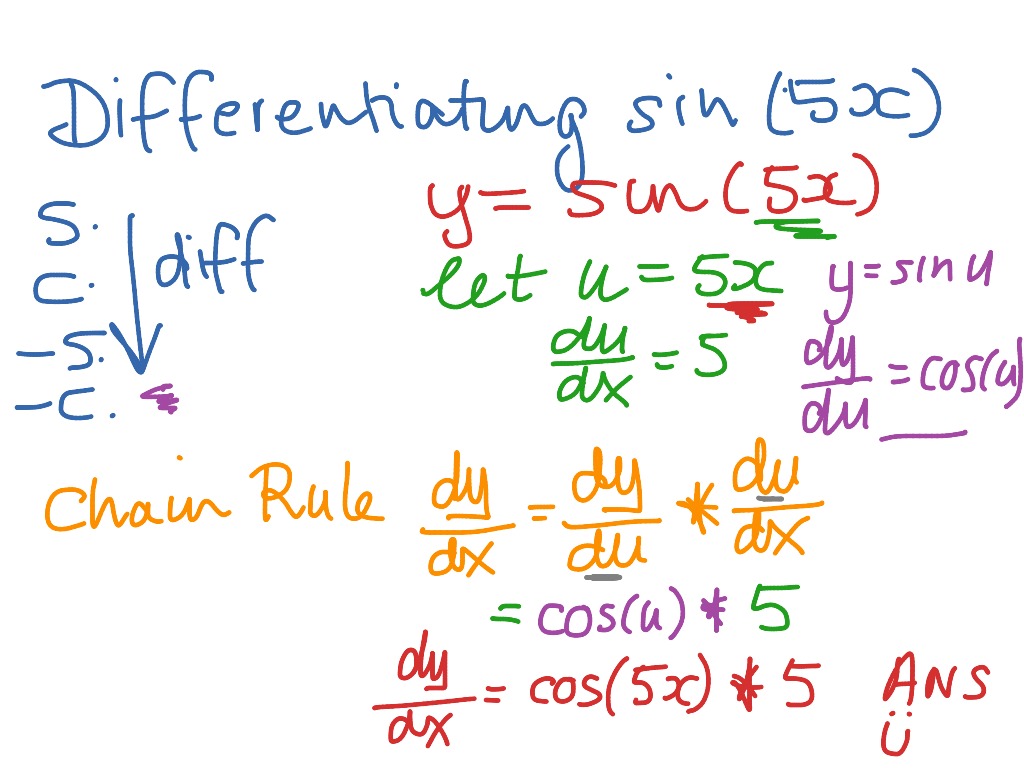 Differentiating sin (5x)
S.
C.
-S.
-C.
diff
y = sin (5x)
let u = 5x
du/dx = 5
y = sin u
dy/du = cos(u)
Chain Rule dy/dx = dy/du * du/dx
= cos(u) * 5
dy/dx = cos(5x) * 5 Ans